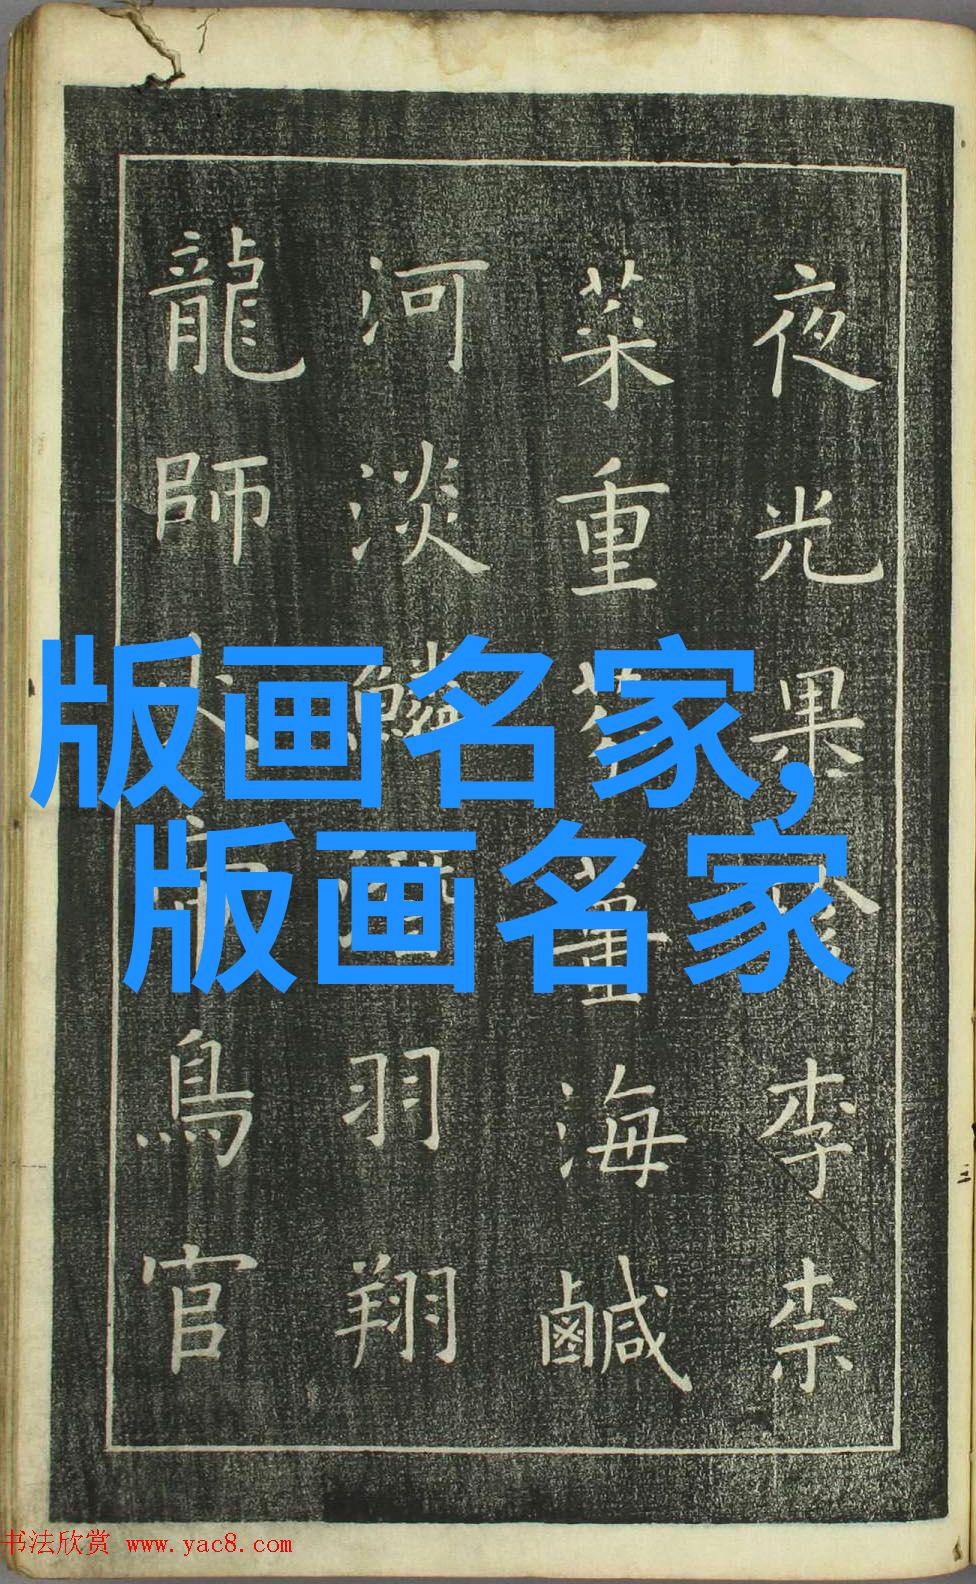 夜光果珍李柰
菜重芥薑海鹹
河淡鱗潛羽翔
龍師火帝鳥官
版画名家,
版画名家
书法欣赏 www.yac8.com